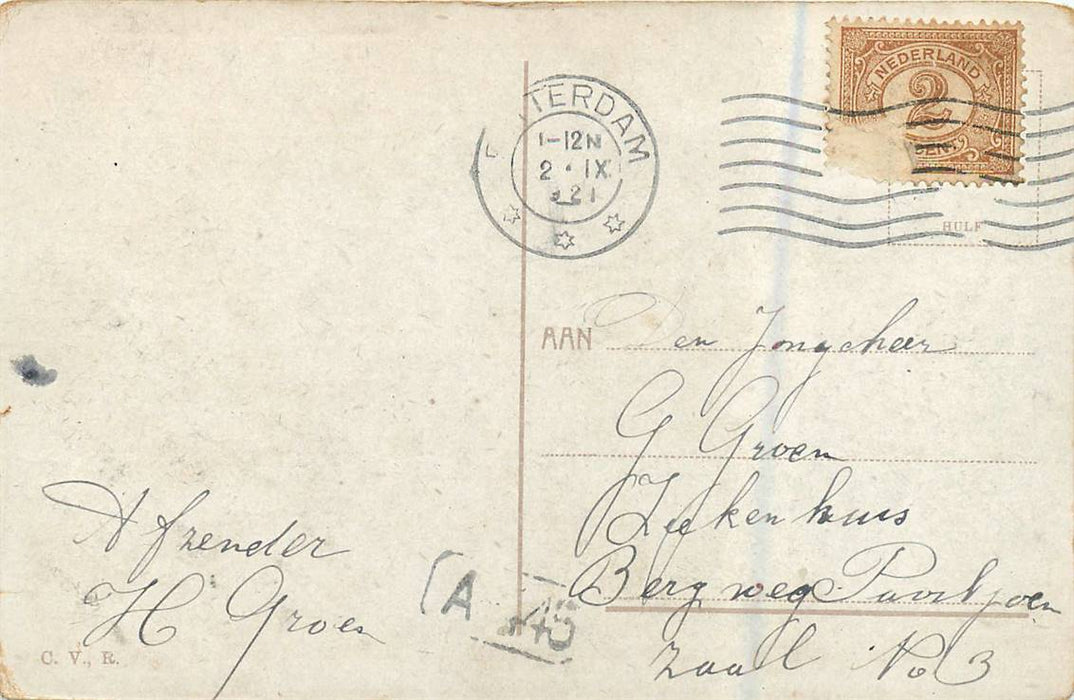 TTERDAM
1-12N
2 · IX
921
NEDERLAND
2
CENT
HULP
AAN Den Jongeheer
G Groen
Ziekenhuis
Bergweg Paviljoen
Zaal No 3
Afzender
H Groen
A
45
C. V., R.